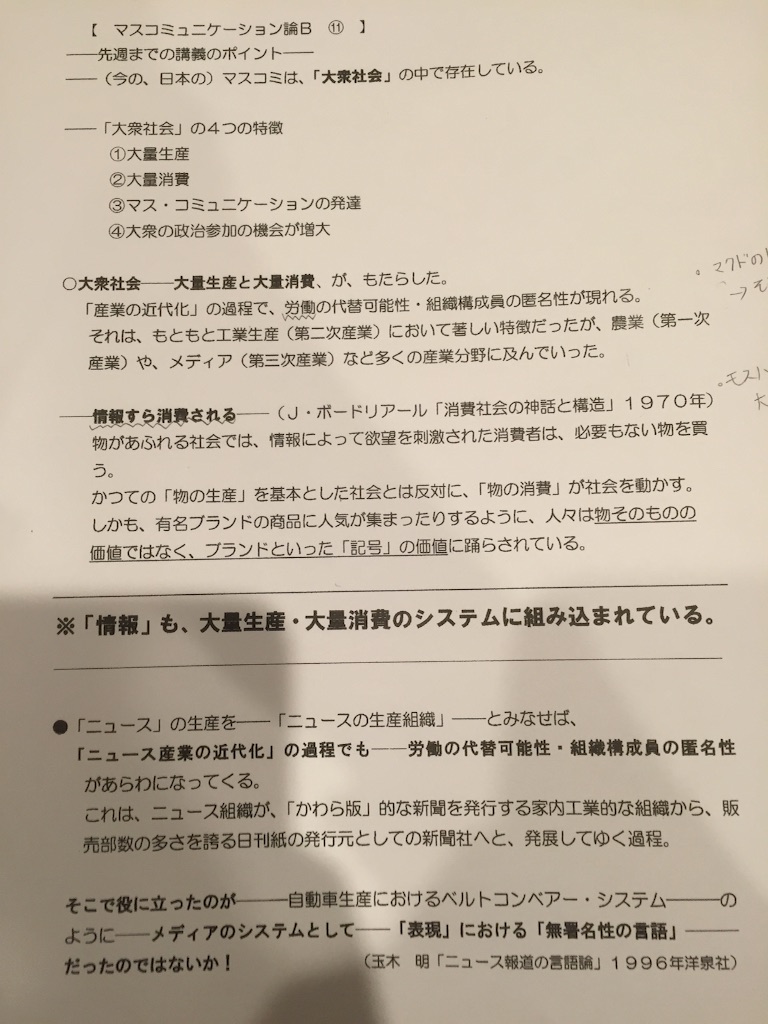 【 マスコミュニケーション論B ⑪ 】
――先週までの講義のポイント――
――（今の、日本の）マスコミは、「大衆社会」の中で存在している。
――「大衆社会」の４つの特徴
①大量生産
②大量消費
③マス・コミュニケーションの発達
④大衆の政治参加の機会が増大
○大衆社会――大量生産と大量消費、が、もたらした。
「産業の近代化」の過程で、労働の代替可能性・組織構成員の匿名性が現れる。
それは、もともと工業生産（第二次産業）において著しい特徴だったが、農業（第一次
産業）や、メディア（第三次産業）など多くの産業分野に及んでいった。
。マクドの
→モ
。モスバ
大
――情報すら消費される――（Ｊ・ボードリアール「消費社会の神話と構造」１９７０年）
物があふれる社会では、情報によって欲望を刺激された消費者は、必要もない物を買
う。
かつての「物の生産」を基本とした社会とは反対に、「物の消費」が社会を動かす。
しかも、有名ブランドの商品に人気が集まったりするように、人々は物そのものの
価値ではなく、ブランドといった「記号」の価値に踊らされている。
※「情報」も、大量生産・大量消費のシステムに組み込まれている。
●「ニュース」の生産を――「ニュースの生産組織」――とみなせば、
「ニュース産業の近代化」の過程でも――労働の代替可能性・組織構成員の匿名性
があらわになってくる。
これは、ニュース組織が、「かわら版」的な新聞を発行する家内工業的な組織から、販
売部数の多さを誇る日刊紙の発行元としての新聞社へと、発展してゆく過程。
そこで役に立ったのが―――自動車生産におけるベルトコンベアー・システム―――の
ように――メディアのシステムとして――「表現」における「無署名性の言語」―――
だったのではないか！ （玉木 明「ニュース報道の言語論」１９９６年洋泉社）